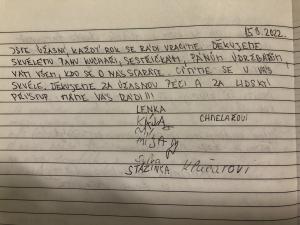 15.9.2022.
JSTE ÚŽASNÍ, KAŽDÝ ROK SE RÁDI VRACÍME. DĚKUJEME
SKVĚLÉMU PANU KUCHAŘI, SESTŘIČKÁM, PÁNŮM ÚDRŽBÁŘŮM,
VÁM VŠEM, KDO SE O NÁS STARÁTE. CÍTÍME SE U VÁS
SKVĚLE, DĚKUJEME ZA ÚŽASNOU PÉČI A ZA LIDSKÝ
PŘÍSTUP. MÁME VÁS RÁDI!!!
LENKA
KÁJA
MÍŠA
Sylva
STAZINKA